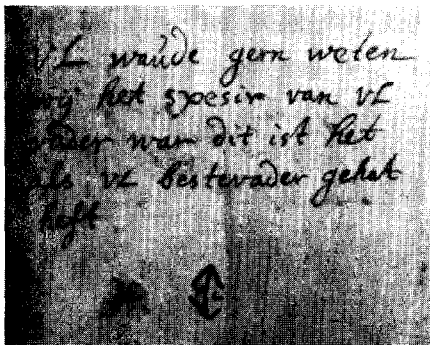 VL waŭde gern weten
wij het spesir van VL
vader war dit ist het
als VL bestevader gehat
heft